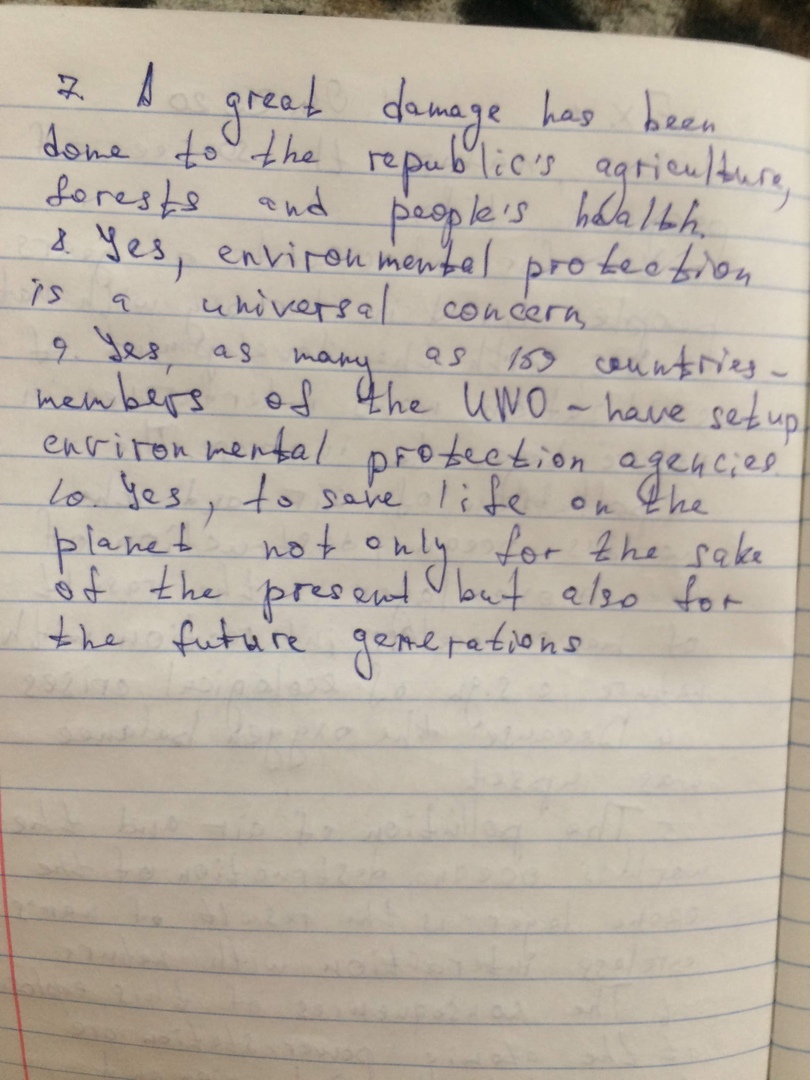 7. A great damage has been
done to the republic's agriculture,
forests and people's health.
8. Yes, environmental protection
is a universal concern,
9 Yes, as many as 159 countries -
members of the UNO - have setup
environmental protection agencies
10. Yes, to save life on the
planet not only for the sake
of the present but also for
the future generations